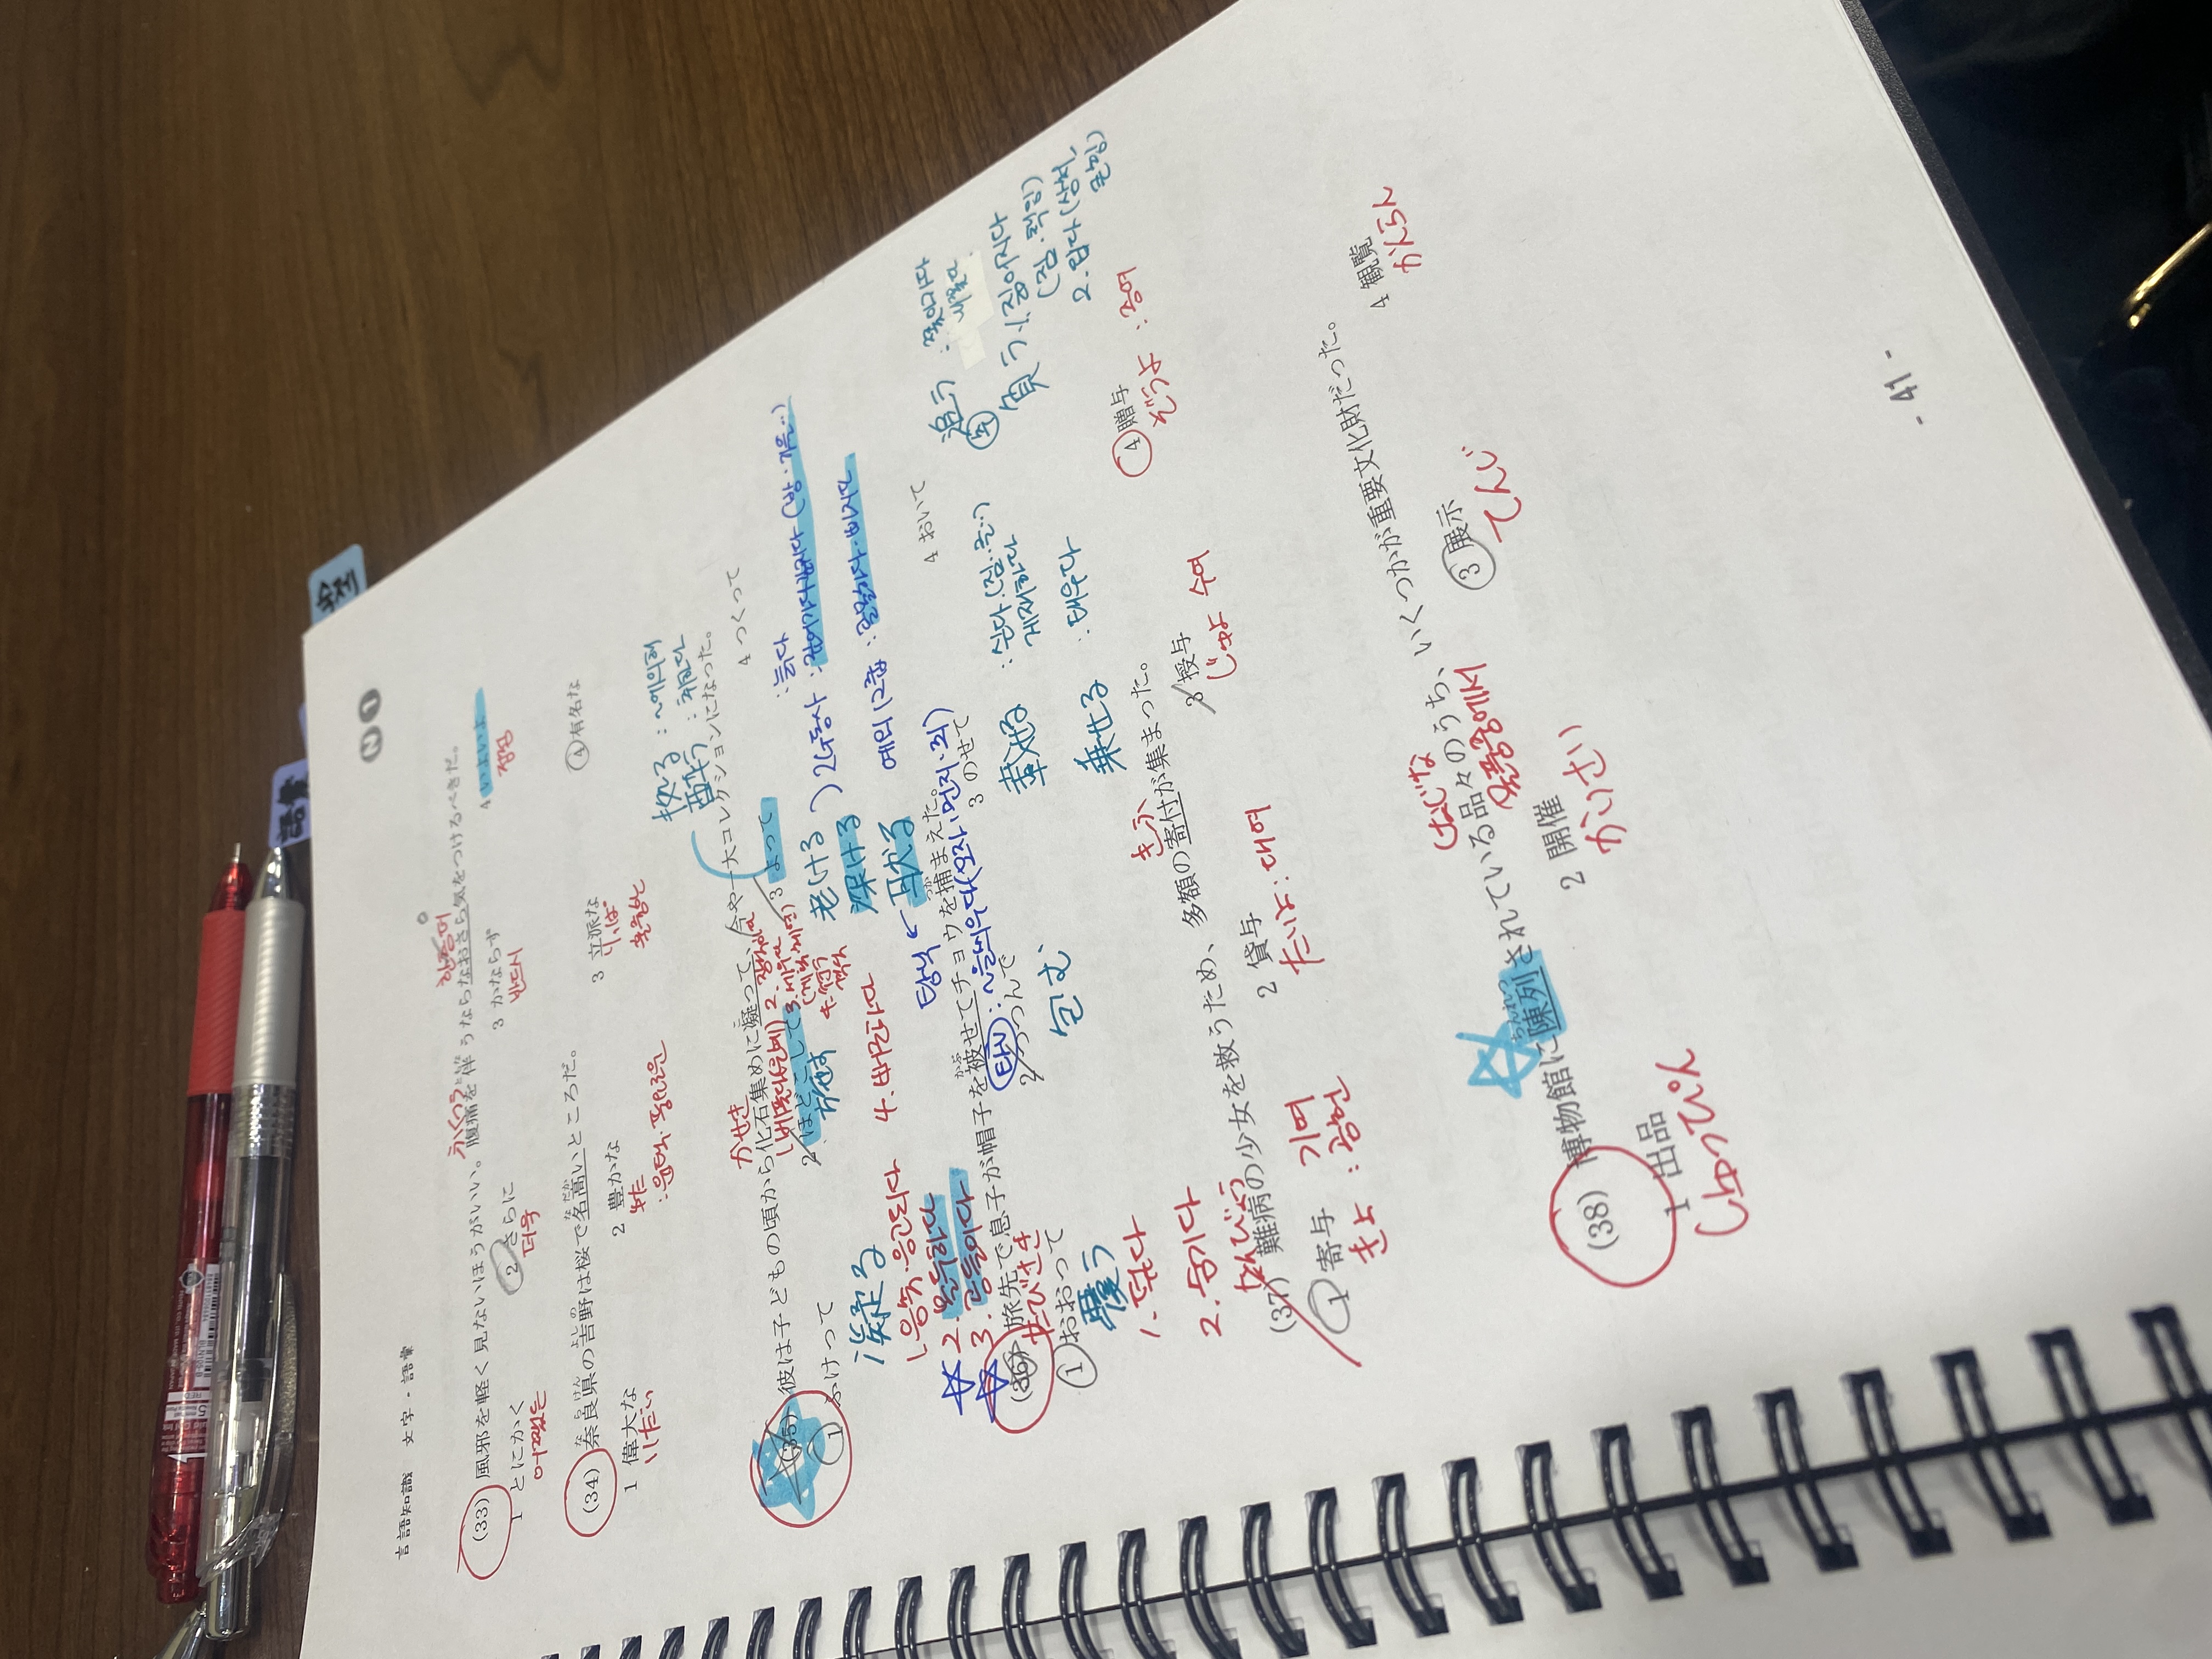 言語知識 文字・語彙
N 1
(33) 風邪を軽く見ないほうがいい。腹痛を伴うならなおさら気をつけるべきだ。
ふくつう
1 とにかく 2 さらに 3 かならず 4 いよいよ
어쨌든 더욱 반드시 점점
(34) 奈良県の吉野は桜で名高いところだ。
ならけん よしの なだか
1 偉大な 2 豊かな 3 立派な 4 有名な
いだい りっぱ
:윤택한·풍요로운 훌륭한
拠る : ~에 의해
酔う : 취하다
(35) 彼は子どもの頃から化石集めに凝って、今や一大コレクションになった。
かせき
1 ふけって 2 ほどこして 3 よって 4 つくって
施す
凝る
1. 응축·응고되다
2. 몰두하다
3. 공들이다
4. 뻐근하다
老ける : 늙다
深ける : 깊어가다 (밤·가을..)
耽る : 골몰하다·빠지다
예외 2그룹
(36) 旅先で息子が帽子を被せてチョウを捕まえた。
たびさき かぶ つか
1 おおって 2 つつんで 3 のせて 4 おいて
覆う
1. 덮다
2. 숨기다
包む
載せる : 싣다 (짐·글..)
게재하다
乗せる : 태우다
追う : 쫓아가다
負う 1. 짊어지다
(짐·책임)
2. 입다 (상처,
(37) 難病の少女を救うため、多額の寄付が集まった。
なんびょう きふ
1 寄与 2 貸与 3 授与 4 贈与
きよ : 공헌 기여
たいよ : 대여
じゅよ 수여
ぞうよ : 증여
(38) 博物館に陳列されている品々のうち、いくつかが重要文化財だった。
ちんれつ しなじな
1 出品 2 開催 3 展示 4 観覧
しゅっぴん かいさい てんじ かんらん
- 41 -